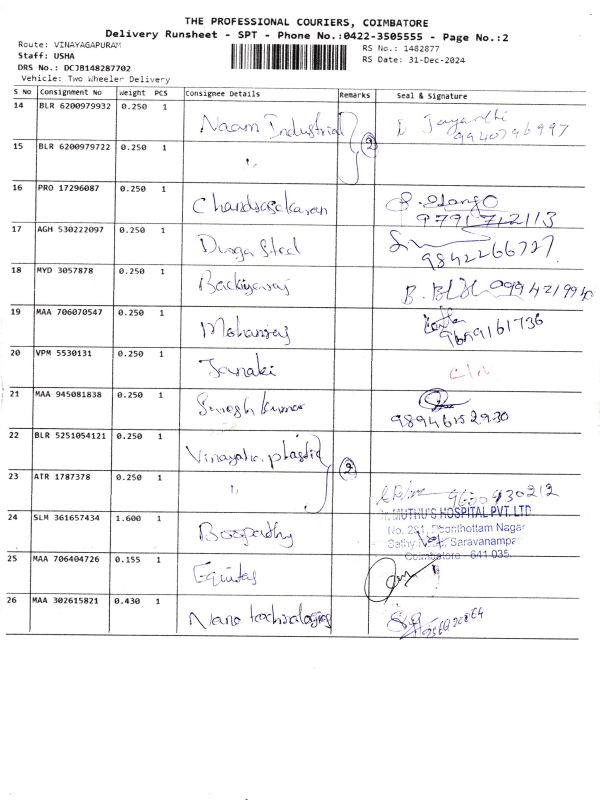 THE PROFESSIONAL COURIERS, COIMBATORE
Delivery Runsheet - SPT - Phone No.:0422-3505555 - Page No.:2
Route: VINAYAGAPURAM
Staff: USHA
DRS No.: DCJB148287702
Vehicle: Two Wheeler Delivery
RS No.: 1482877
RS Date: 31-Dec-2024
S No Consignment No Weight PCS Consignee Details Remarks Seal & Signature
14 BLR 6200979932 0.250 1 Naam Industrial Jayanthi
2 9940796997
15 BLR 6200979722 0.250 1 "
16 PRO 17296087 0.250 1 Chandrasekaran
9791712113
17 AGH 530222097 0.250 1 Durga Steel
9842266727
18 MYD 3057878 0.250 1 Backiyaraj
19 MAA 706070547 0.250 1 Mohanraj
9659161736
20 VPM 5530131 0.250 1 Janaki
21 MAA 945081838 0.250 1 Suresh kumar
9894652930
22 BLR 5251054121 0.250 1 Vinayaka plastic
2
23 ATR 1787378 0.250 1 "
9600930212
24 SLM 361657434 1.600 1 Boopathy
MUTHU'S HOSPITAL PVT. LTD
Thonthottam Nagar
Saravanampa
Coimbatore - 641 035.
25 MAA 706404726 0.155 1 Equitas
26 MAA 302615821 0.430 1 Nano technologies